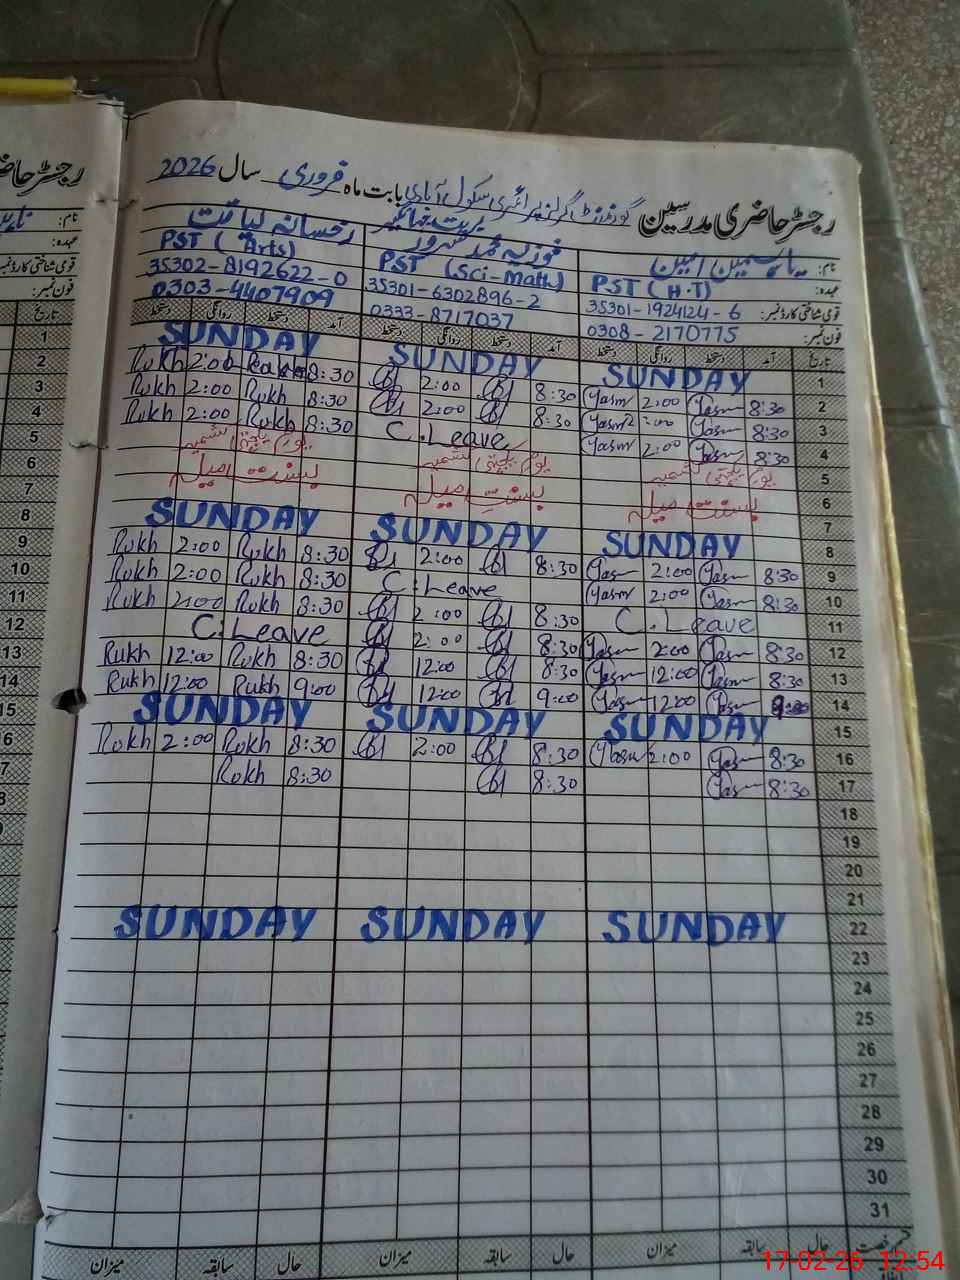 رجسٹر حاضری مدرسین گورنمنٹ گرلز پرائمری سکول آبادی بابت ماہ فروری سال 2026
نام: یاسمین امین فوزیہ محمد سرور رخسانہ لیاقت
عہدہ: PST (H.T) PST (Sci-Math) PST (Arts)
قومی شناختی کارڈ نمبر: 35301-1924124-6 35301-6302896-2 35302-8192622-0
فون نمبر: 0308-2170775 0333-8717037 0303-4407909
تاریخ آمد دستخط روانگی دستخط آمد دستخط روانگی دستخط آمد دستخط روانگی دستخط
1 SUNDAY SUNDAY SUNDAY
2 8:30 Yasm 2:00 Yasm 8:30 2:00 8:30 Rukh 2:00 Rukh
3 8:30 Yasm 2:00 Yasm 8:30 2:00 8:30 Rukh 2:00 Rukh
4 8:30 Yasm 2:00 Yasm C.Leave 8:30 Rukh 2:00 Rukh
5 یوم یکجہتی کشمیر یوم یکجہتی کشمیر یوم یکجہتی کشمیر
6 بسنت میلہ بسنت میلہ بسنت میلہ
7
8 SUNDAY SUNDAY SUNDAY
9 8:30 Yasm 2:00 Yasm 8:30 2:00 8:30 Rukh 2:00 Rukh
10 8:30 Yasm 2:00 Yasm C.Leave 8:30 Rukh 2:00 Rukh
11 C.Leave 8:30 2:00 8:30 Rukh 2:00 Rukh
12 8:30 Yasm 2:00 Yasm 8:30 2:00 C.Leave
13 8:30 Yasm 12:00 Yasm 8:30 12:00 8:30 Rukh 12:00 Rukh
14 9:00 Yasm 12:00 Yasm 9:00 12:00 9:00 Rukh 12:00 Rukh
15 SUNDAY SUNDAY SUNDAY
16 8:30 Yasm 2:00 Yasm 8:30 2:00 8:30 Rukh 2:00 Rukh
17 8:30 Yasm 8:30 8:30 Rukh
18
19
20
21
22 SUNDAY SUNDAY SUNDAY
23
24
25
26
27
28
29
30
31
حال سابقہ میزان حال سابقہ میزان حال سابقہ میزان
17-02-26 12:54